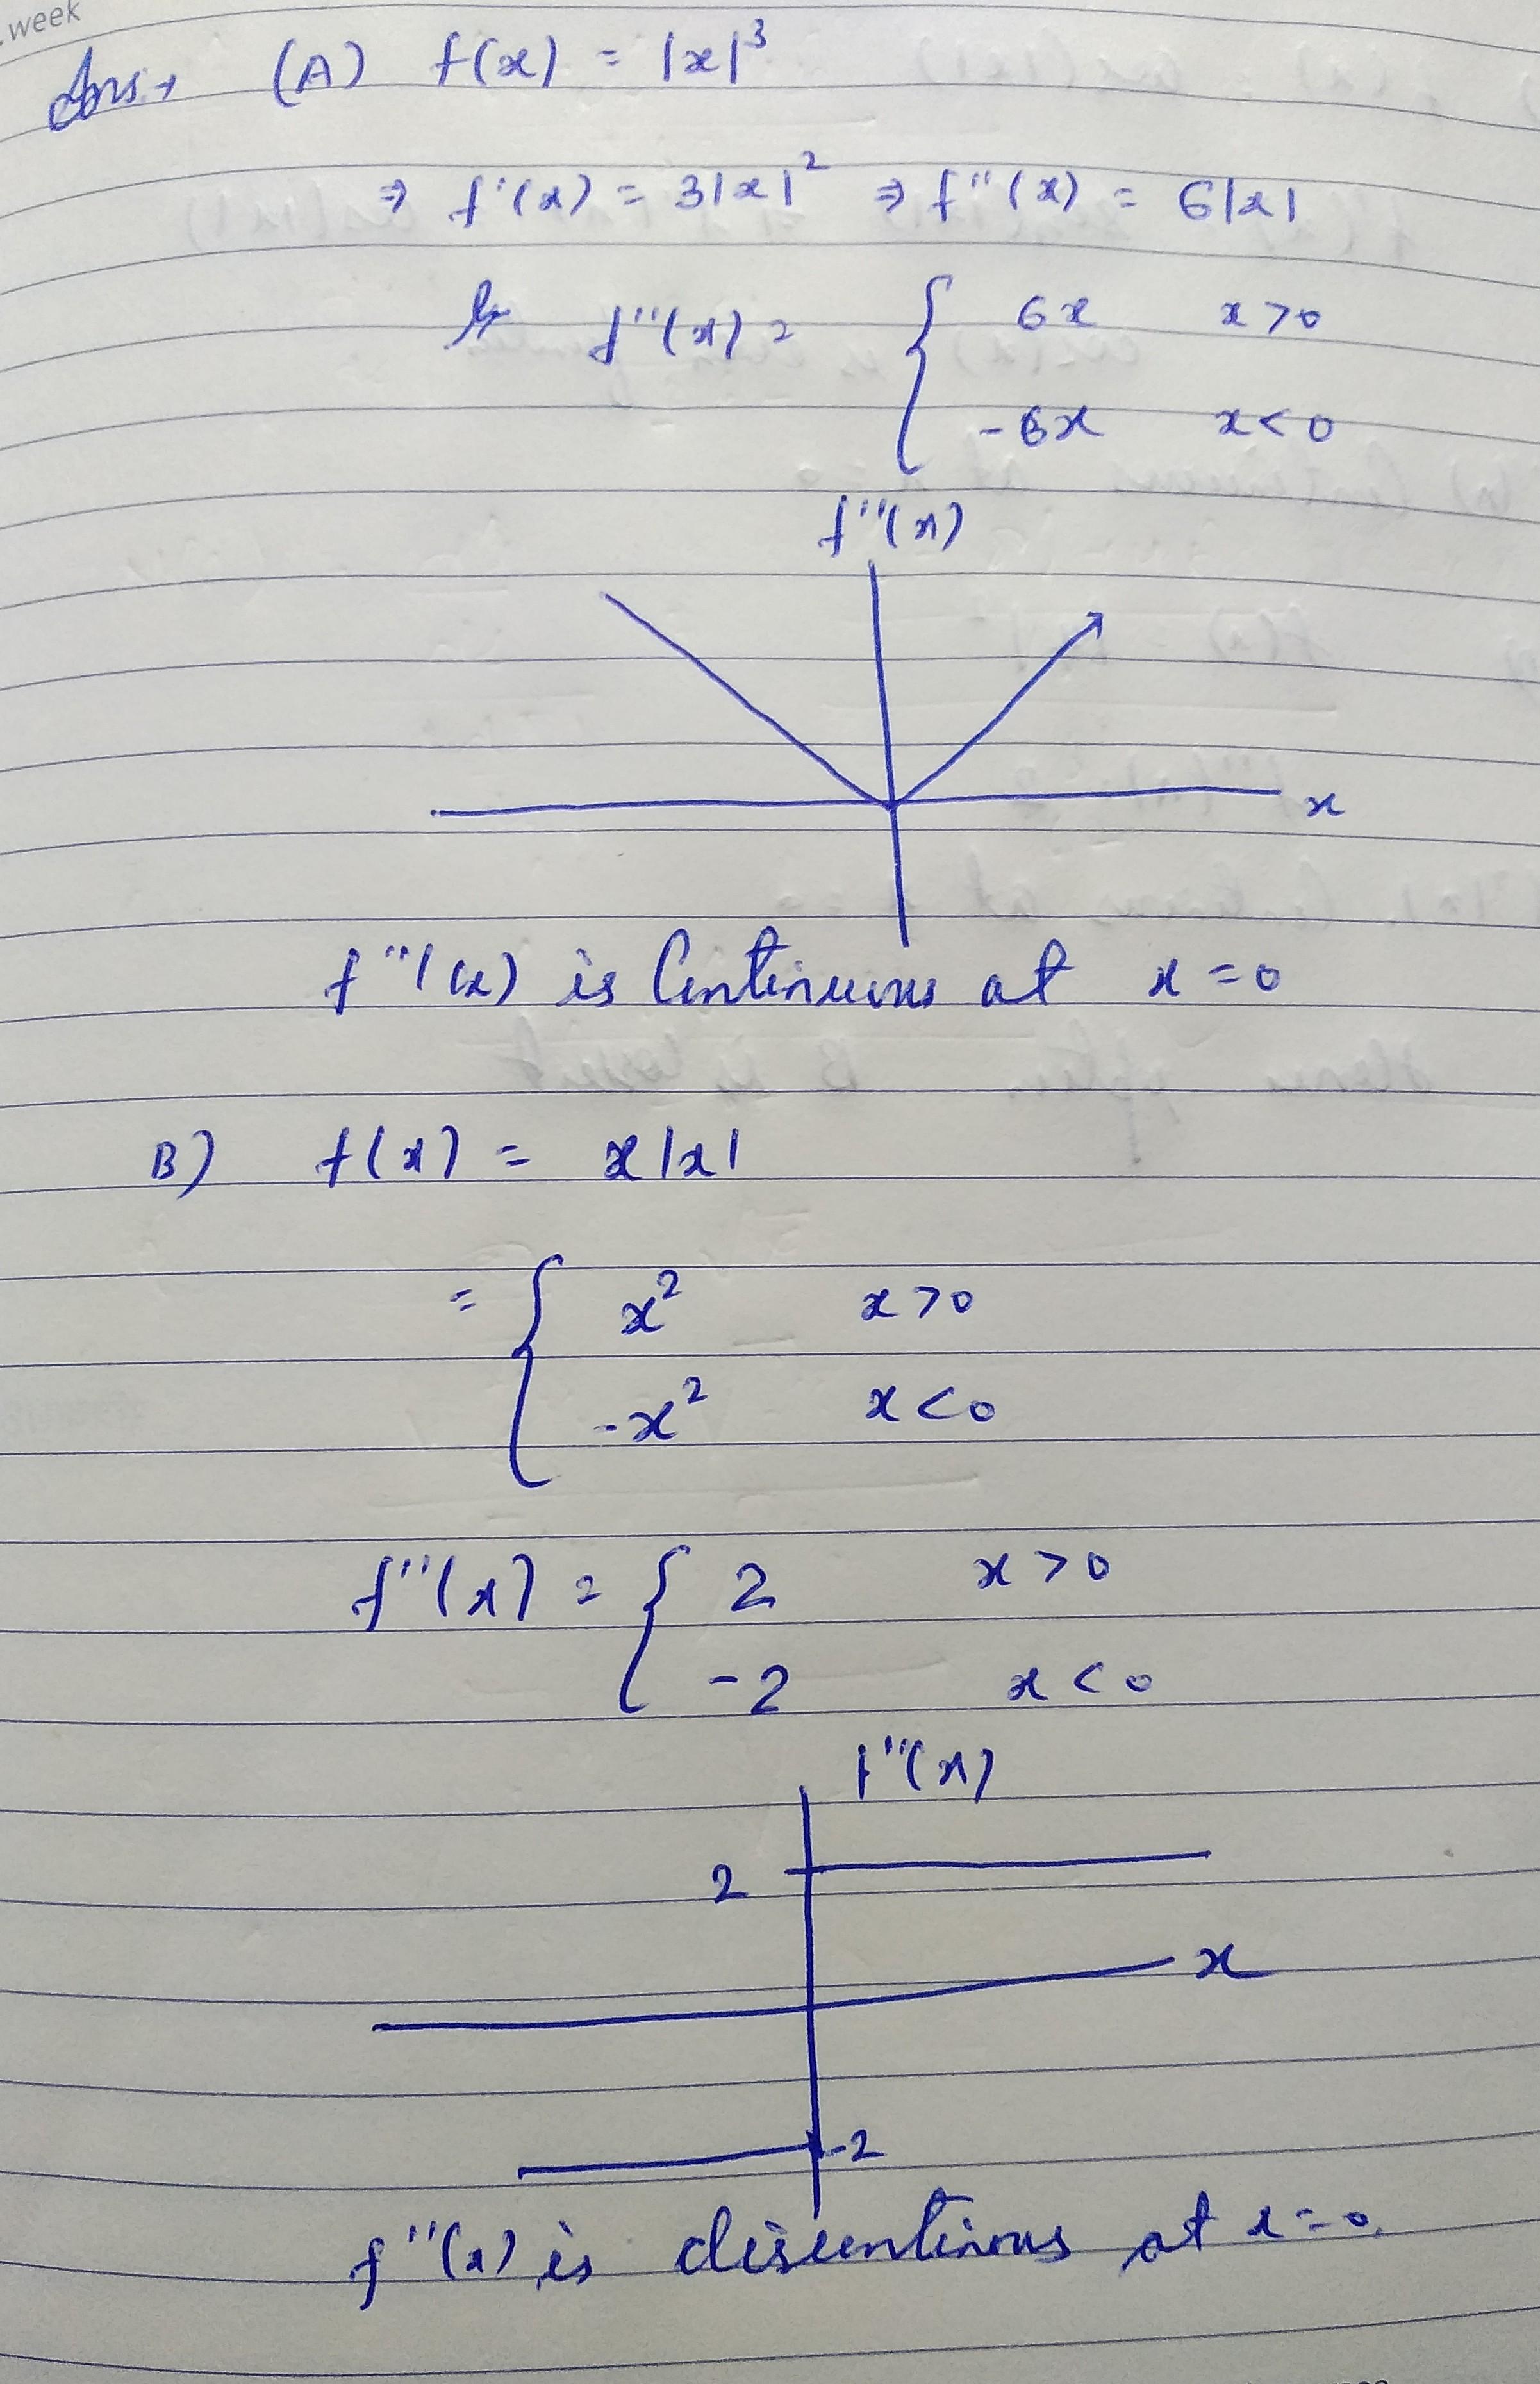 week
Ans → (A) f(x) = |x|³
⇒ f'(x) = 3|x|² ⇒ f''(x) = 6|x|
f''(x) = { 6x x>0
-6x x<0
f''(x)
x
f''(x) is Continuous at x=0
B) f(x) = x|x|
= { x² x>0
-x² x<0
f''(x) = { 2 x>0
-2 x<0
f''(x)
2
x
-2
f''(x) is discontinous at x=0.